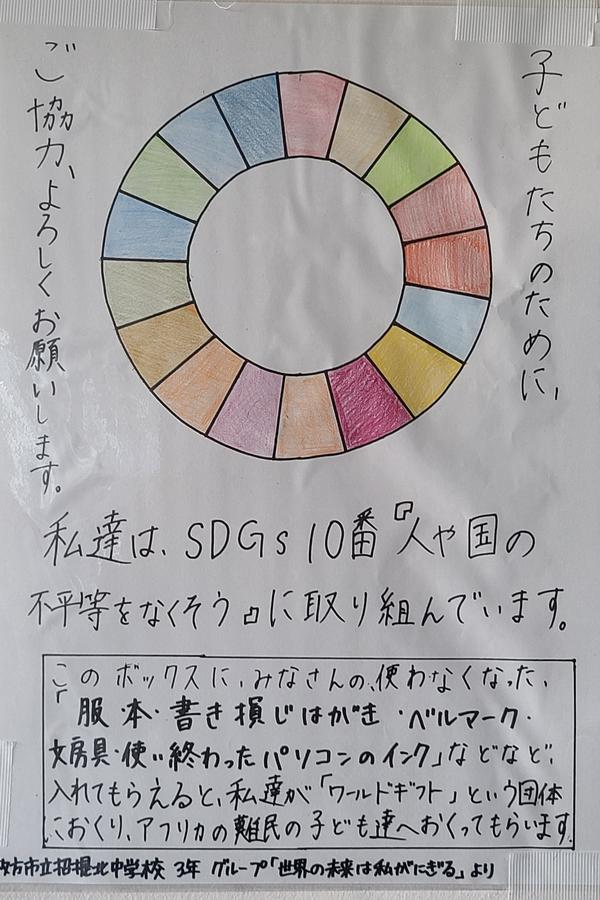 子どもたちのために、
ご協力、よろしくお願いします。
私達は、SDGs 10番『人や国の
不平等をなくそう』に取り組んでいます。
このボックスに、みなさんの、使わなくなった、
「服・本・書き損じはがき・ベルマーク・
文房具・使い終わったパソコンのインク」などなど、
入れてもらえると、私達が「ワールドギフト」という団体
におくり、アフリカの難民の子ども達へおくってもらいます。
方市立招提北中学校 3年 グループ「世界の未来は私がにぎる」より